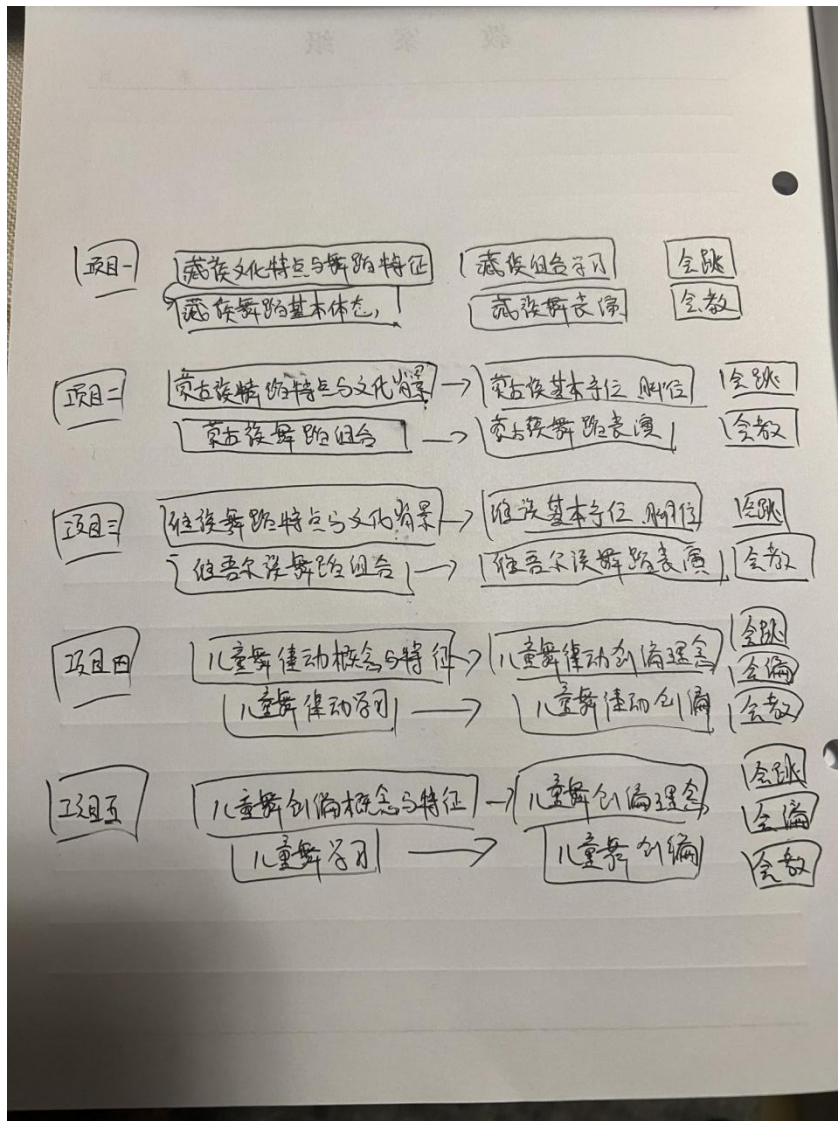 教案纸
项目一 藏族文化特点与舞蹈特征 藏族组合学习 会跳
藏族舞蹈基本体态, 藏族舞表演 会教
项目二 蒙古族舞蹈特点与文化背景 → 蒙古族基本手位、脚位 会跳
蒙古族舞蹈组合 → 蒙古族舞蹈表演 会教
项目三 维族舞蹈特点与文化背景 → 维族基本手位、脚位 会跳
维吾尔族舞蹈组合 → 维吾尔族舞蹈表演 会教
项目四 儿童舞律动概念与特征 → 儿童舞律动创编理念 会跳
会编
儿童舞律动学习 → 儿童舞律动创编 会教
项目五 儿童舞创编概念与特征 → 儿童舞创编理念 会跳
会编
儿童舞学习 → 儿童舞创编 会教